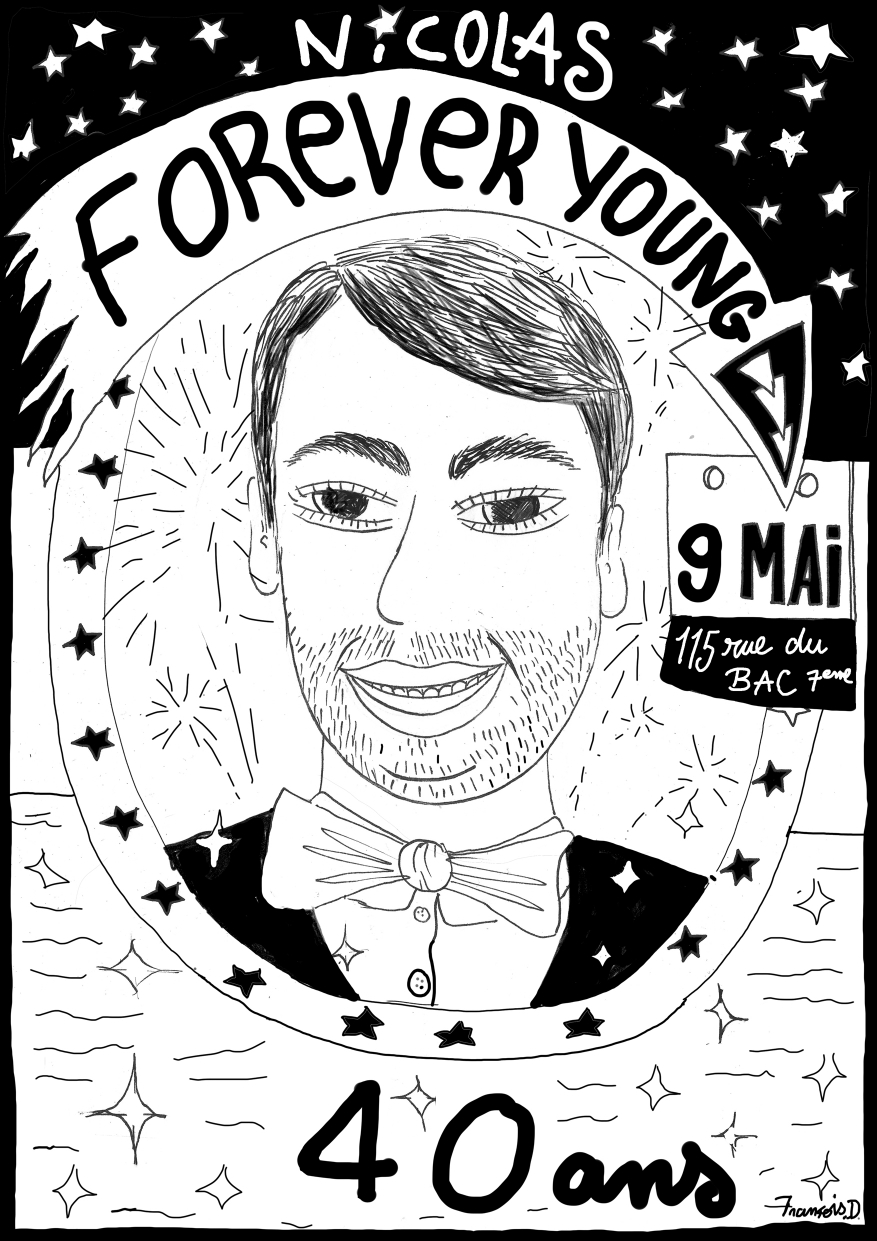 NiCOLAS
FOReVeR YOUNG
9 MAi
115 rue du
BAC 7eme
40 ans
François.D.